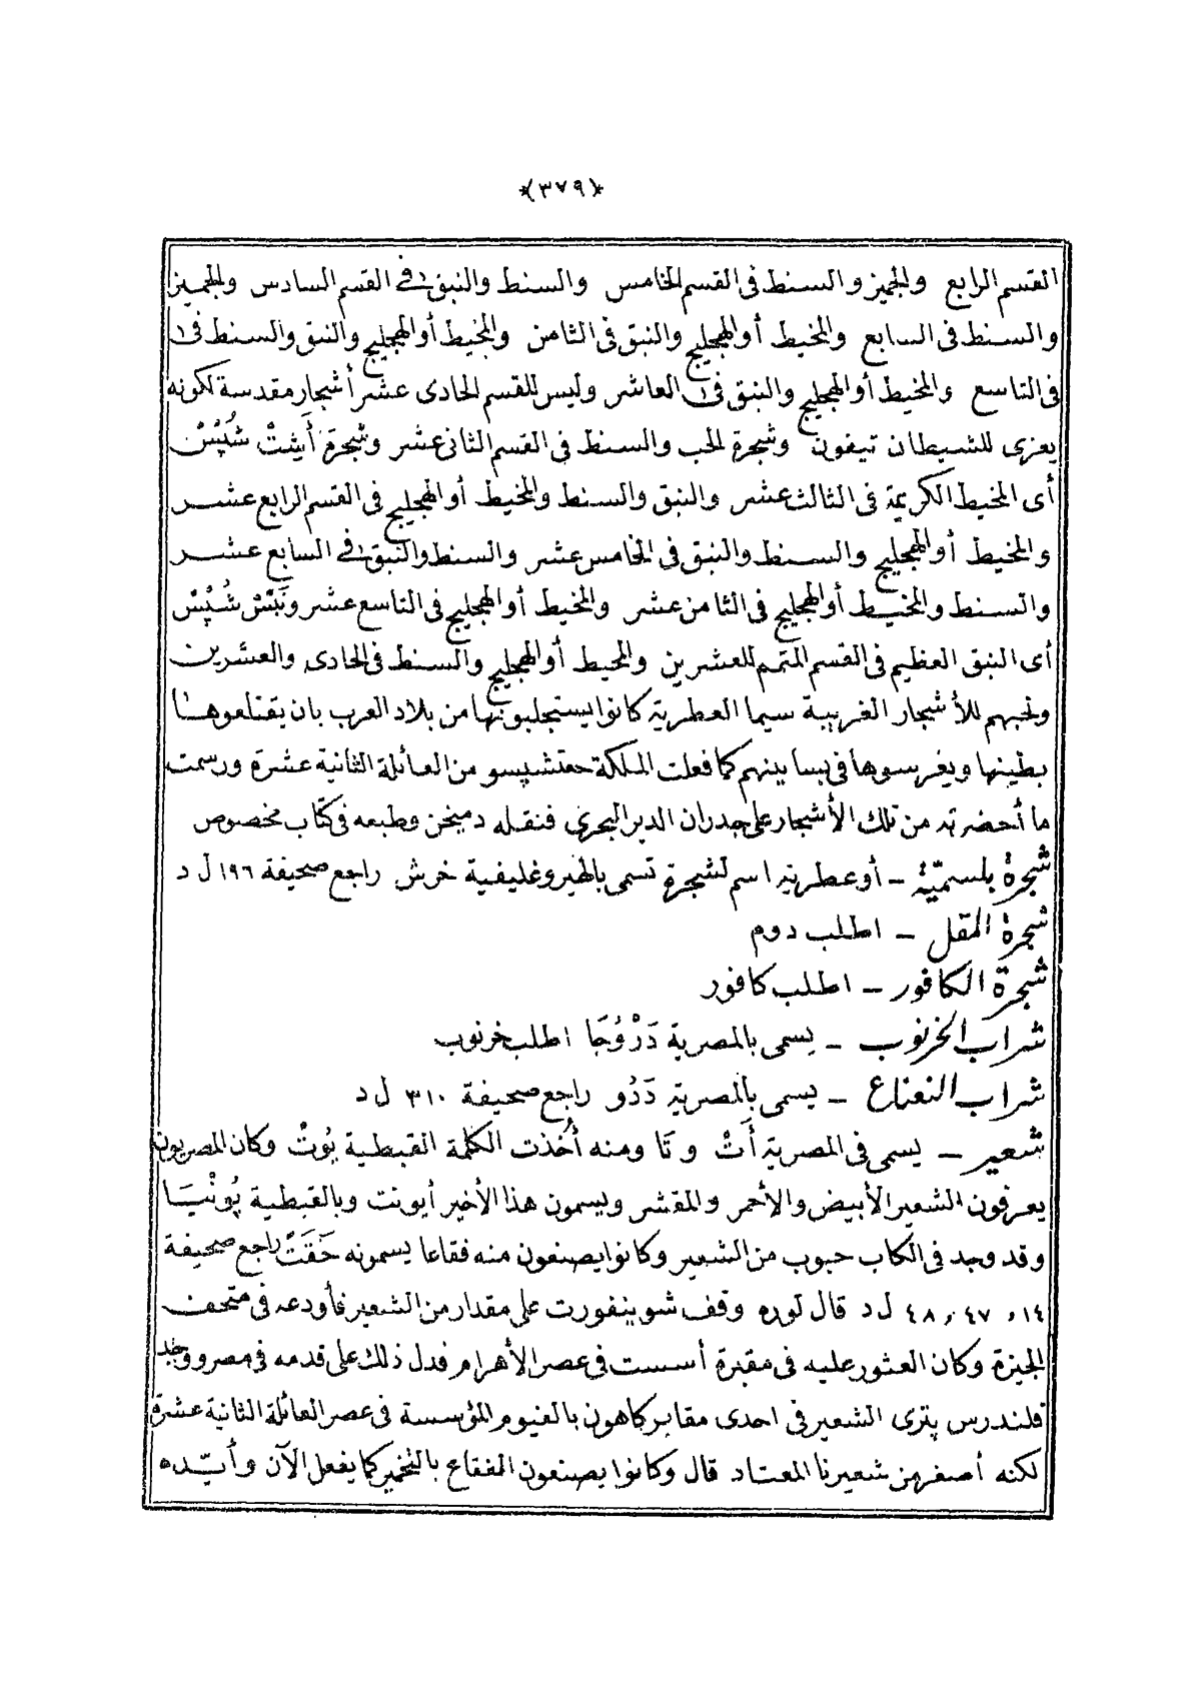 *(٣٧٩)*
القسم الرابع والجميز والسنط فى القسم الخامس والسنط والنبق فى القسم السادس والجميز
والسنط فى السابع والمخيط أو الهجليج والنبق فى الثامن والمخيط أو الهجليج والنبق والسنط فى
فى التاسع والمخيط أو الهجليج والنبق فى العاشر وليس للقسم الحادى عشر أشجار مقدسة لكونه
يعزى للشيطان تيفون وشجرة الحب والسنط فى القسم الثانى عشر وشجرة أَشِتْ شُپْسْ
أى المخيط الكريمة فى الثالث عشر والنبق والسنط والمخيط أو الهجليج فى القسم الرابع عشر
والمخيط أو الهجليج والسنط والنبق فى الخامس عشر والسنط والنبق فى السابع عشر
والسنط والمخيط أو الهجليج فى الثامن عشر والمخيط أو الهجليج فى التاسع عشر ونَبْسْ شُپْسْ
أى النبق العظيم فى القسم المتمم للعشرين والمخيط أو الهجليج والسنط فى الحادى والعشرين
ولحبهم للأشجار الغريبة سيما العطرية كانوا يستجلبونها من بلاد العرب بان يقتلعوها
بطينها ويغرسوها فى بساتينهم كما فعلت الملكة حعتشپسو من العائلة الثانية عشرة ورسمت
ما أحضرته من تلك الأشجار على جدران الدير البحرى فنقله دميخن وطبعه فى كتاب مخصوص
شجرة بلسمّية – أو عطرية اسم لشجرة تسمى بالهيروغليفية خرش راجع صحيفة ١٩٦ ل د
شجرة المقل – اطلب دوم
شجرة الكافور – اطلب كافور
شراب الخرنوب – يسمى بالمصرية دَرْوُجَا اطلب خرنوب
شراب النعناع – يسمى بالمصرية دَدُو راجع صحيفة ٣١٠ ل د
شعير – يسمى فى المصرية أَتْ و تَا ومنه أُخذت الكلمة القبطية يُوتْ وكان المصريون
يعرفون الشعير الأبيض والأحمر والمقشر ويسمون هذا الأخير أيونت وبالقبطية يُونْيَا
وقد وجد فى الكاب حبوب من الشعير وكانوا يصنعون منه فقاعا يسمونه حَقَتْ راجع صحيفة
١٤ و ٤٧ و ٤٨ ل د قال لوره وقف شوينفورت على مقدار من الشعير فأودعه فى متحف
الجيزة وكان العثور عليه فى مقبرة أسست فى عصر الأهرام فدل ذلك على قدمه فى مصر ووجد
فلندرس پترى الشعير فى احدى مقابر كاهون بالفيوم المؤسسة فى عصر العائلة الثانية عشرة
لكنه أصغر من شعيرنا المعتاد قال وكانوا يصنعون المفقاع بالتخمير كما يفعل الآن وأيّده